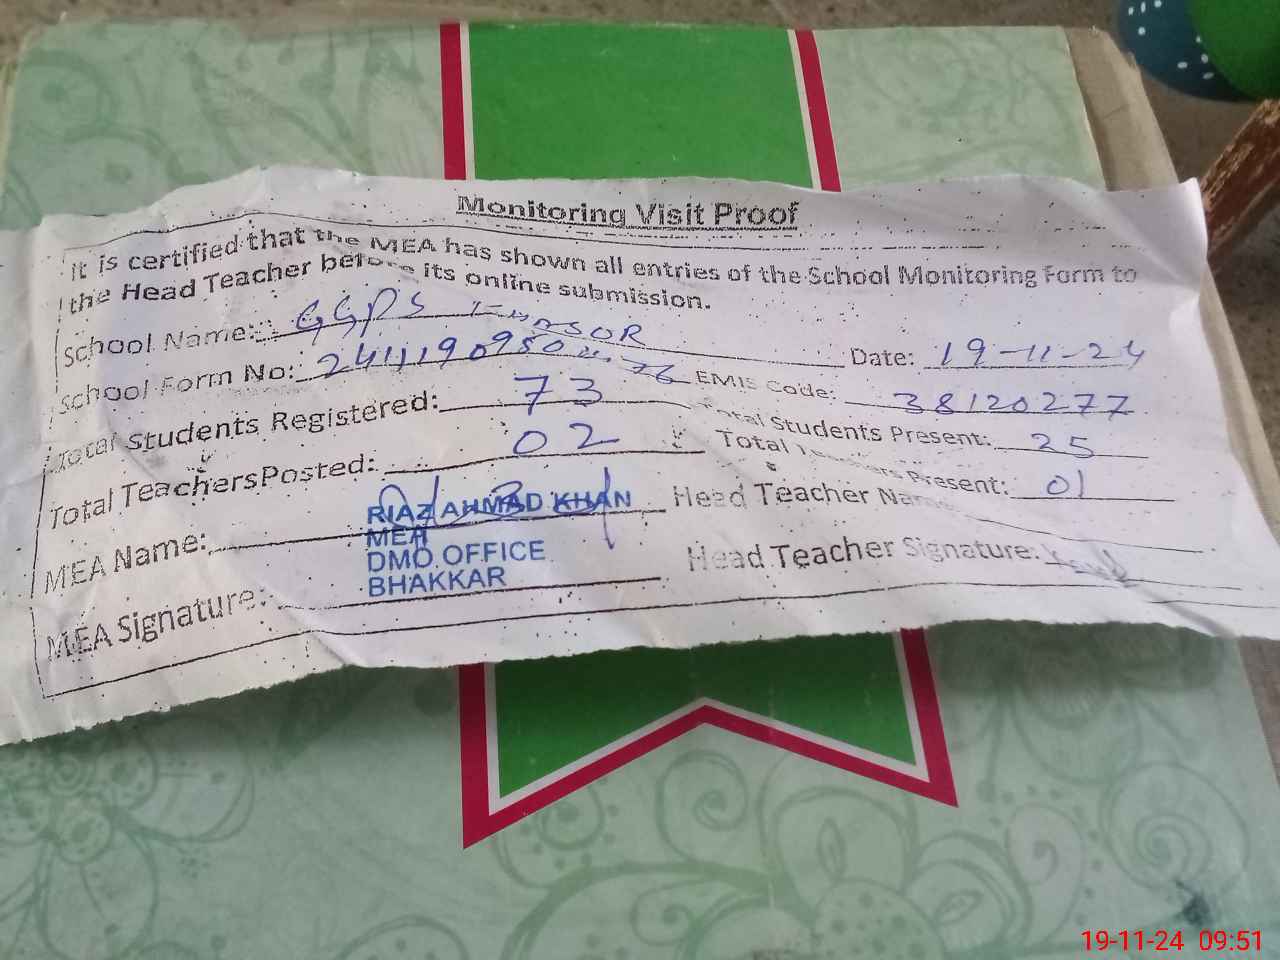 Monitoring Visit Proof
It is certified that the MEA has shown all entries of the School Monitoring Form to
the Head Teacher before its online submission.
School Name: GGPS
Date: 19-11-24
School Form No:
EMIS Code: 38120277
Total Students Registered: 73
Total Students Present: 25
Total TeachersPosted: 02
Total Teachers Present: 01
MEA Name:
RIAZ AHMAD KHAN
MEA
DMO.OFFICE
BHAKKAR
Head Teacher Name
MEA Signature:
Head Teacher Signature:
19-11-24 09:51